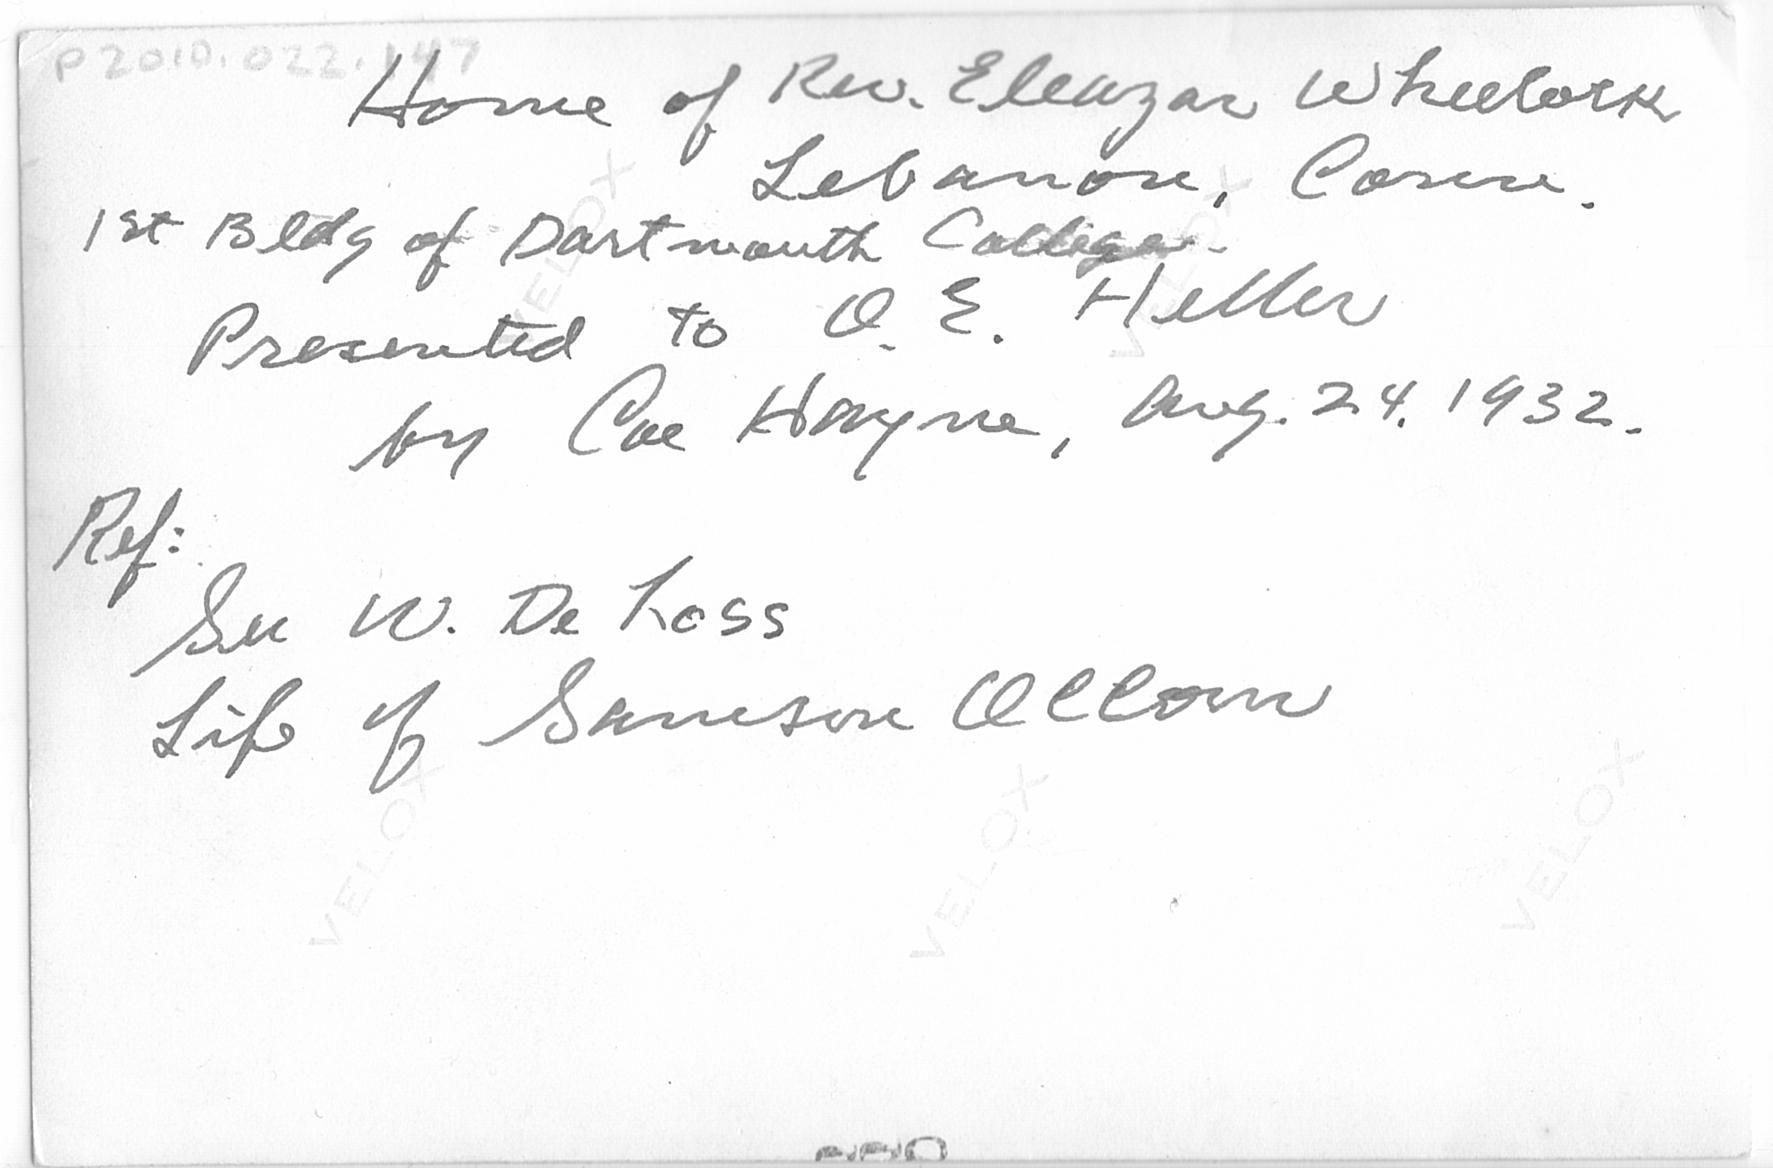 P2010.022.147
Home of Rev. Eleazar Wheelock
Lebanon, Conn.
1st Bldg of Dartmouth College.
Presented to O. E. Heller
by Coe Hayne, Aug. 24. 1932.
Ref:
See W. De Loss
Life of Samson Occom
VELOX
VELOX
VELOX
VELOX
VELOX